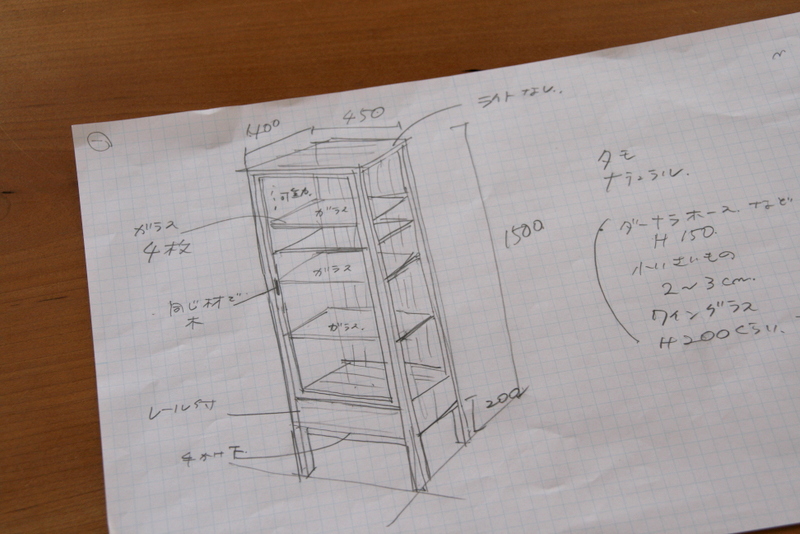 ①
400
450
ミカドなし.
可動式
ガラス
4枚
ガラス
ガラス
ガラス.
同じ材で
木
レール付
手かけ下
1500
200
タモ
ナチュラル.
ダーナラホース. など
H 150.
小いさいもの
2〜3cm.
ワイングラス
H200くらい.